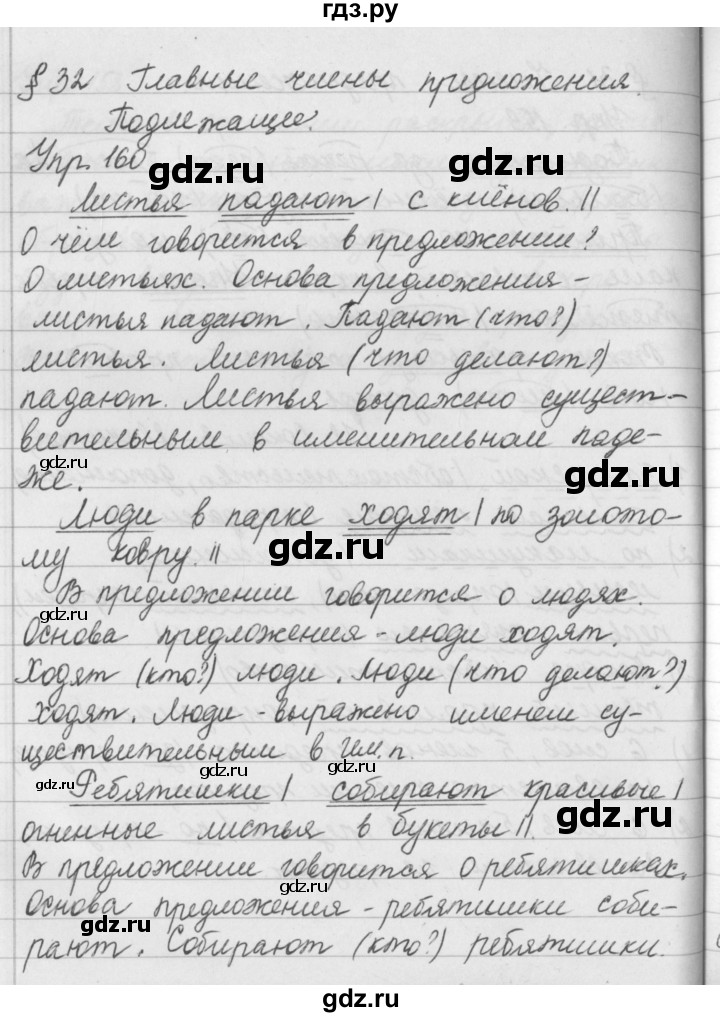 гдз.ру
§ 32 Главные члены предложения.
Подлежащее.
Упр. 160
gdz.ru
gdz.ru
Листья падают | с клёнов. ||
О чём говорится в предложении?
О листьях. Основа предложения -
gdz.ru
gdz.ru
листья падают. Падают (что?)
листья. Листья (что делают?)
gdz.ru
падают. Листья выражено сущест-
вительным в именительном паде-
же.
gdz.ru
gdz.ru
Люди в парке ходят | по золото-
му ковру. ||
gdz.ru
В предложении говорится о людях.
gdz.ru
Основа предложения - люди ходят.
Ходят (кто?) люди. Люди (что делают?)
ходят. Люди - выражено именем су-
ществительным в Им. п.
gdz.ru
gdz.ru
Ребятишки | собирают красивые |
огненные листья в букеты ||.
gdz.ru
В предложении говорится о ребятишках.
gdz.ru
Основа предложения - ребятишки соби-
рают. Собирают (кто?) ребятишки.
gdz.ru
gdz.ru
gdz.ru